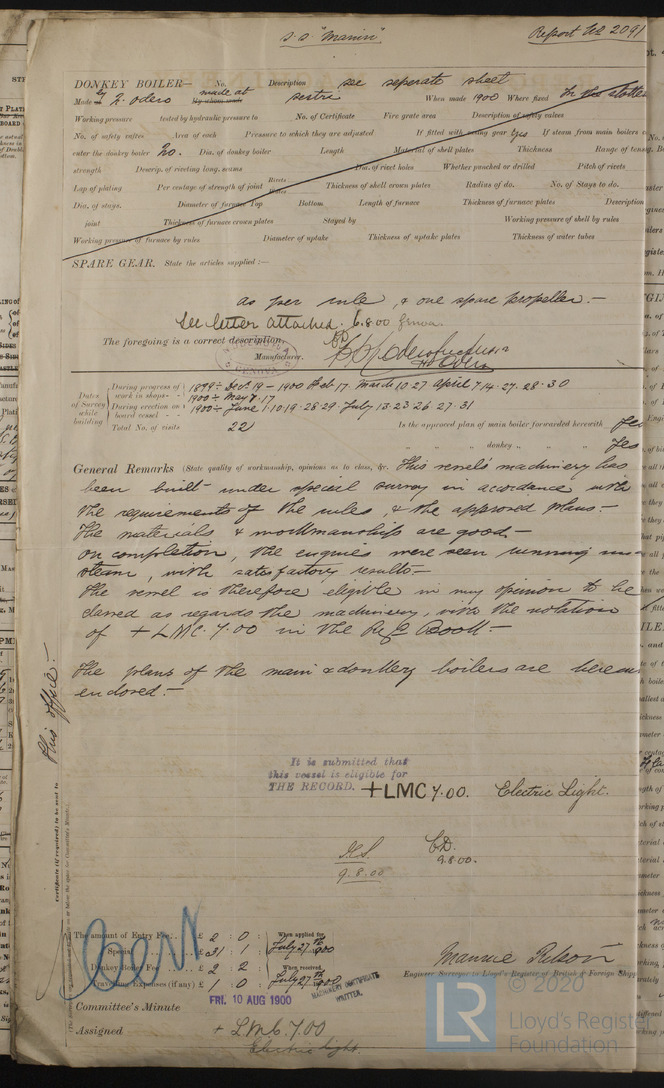 S.S. "Manin"
Report No 2091
DONKEY BOILER— No. Description see seperate sheet
Made by N. Odero made at sestri When made 1900 Where fixed In the
Working pressure tested by hydraulic pressure to No. of Certificate Fire grate area Description of safety valves
No. of safety valves Area of each Pressure to which they are adjusted If fitted with easing gear yes If steam from main boilers c
enter the donkey boiler no. Dia. of donkey boiler Length Material of shell plates Thickness Range of tens
strength Descrip. of riveting long. seams Dia. of rivet holes Whether punched or drilled Pitch of rivets
Lap of plating Per centage of strength of joint Rivets Plates Thickness of shell crown plates Radius of do. No. of Stays to do.
Dia. of stays. Diameter of furnace Top Bottom Length of furnace Thickness of furnace plates Description
joint Thickness of furnace crown plates Stayed by Working pressure of shell by rules
Working pressure of furnace by rules Diameter of uptake Thickness of uptake plates Thickness of water tubes
SPARE GEAR. State the articles supplied :—
as per rule, & one spare propeller.—
See letter attached. 6.8.00 Genoa.
The foregoing is a correct description,
Manufacturer.
GENOVA
Dates of Survey while building
During progress of work in shops - - 1899:- Dec. 19 - 1900 Feb. 17. March 10 27 April 7.14.27.28.30
1900:- May 7.17
During erection on board vessel - - 1900:- June 1.10.19.28.29. July 13.23.26.27.31
Total No. of visits 22
Is the approved plan of main boiler forwarded herewith Yes
" " " donkey " " " Yes
General Remarks (State quality of workmanship, opinions as to class, &c. This vessel's machinery has
been built under special survey in accordance with
the requirements of the rules & the approved plans.—
The materials & workmanship are good.—
On completion, the engines were seen running un
steam, with satisfactory results.—
The vessel is therefore eligible in my opinion to be
classed as regards the machinery, with the notation
of + LMC. 7.00 in the Reg. Book.—
The plans of the main & donkey boilers are herewi
enclosed.—
This office.—
Certificate (if required) to be sent to
It is submitted that
this vessel is eligible for
THE RECORD. + LMC 7.00. Electric Light.
9.8.00
9.8.00.
The amount of Entry Fee.. £ 2 : 0 : When applied for,
Special £ 31 : 1 : July 27th 1900
Donkey Boiler Fee £ 2 : 2 : When received,
Travelling Expenses (if any) £ 1 : 0 : July 27th 1900
Cert
Engineer Surveyor to Lloyd's Register of British & Foreign Shipp
FRI. 10 AUG 1900
MACHINERY CERTIFICATE
WRITTEN.
Committee's Minute
Assigned + L.M.C. 7.00
Electric light.
© 2020
LR
Lloyd's Register
Foundation